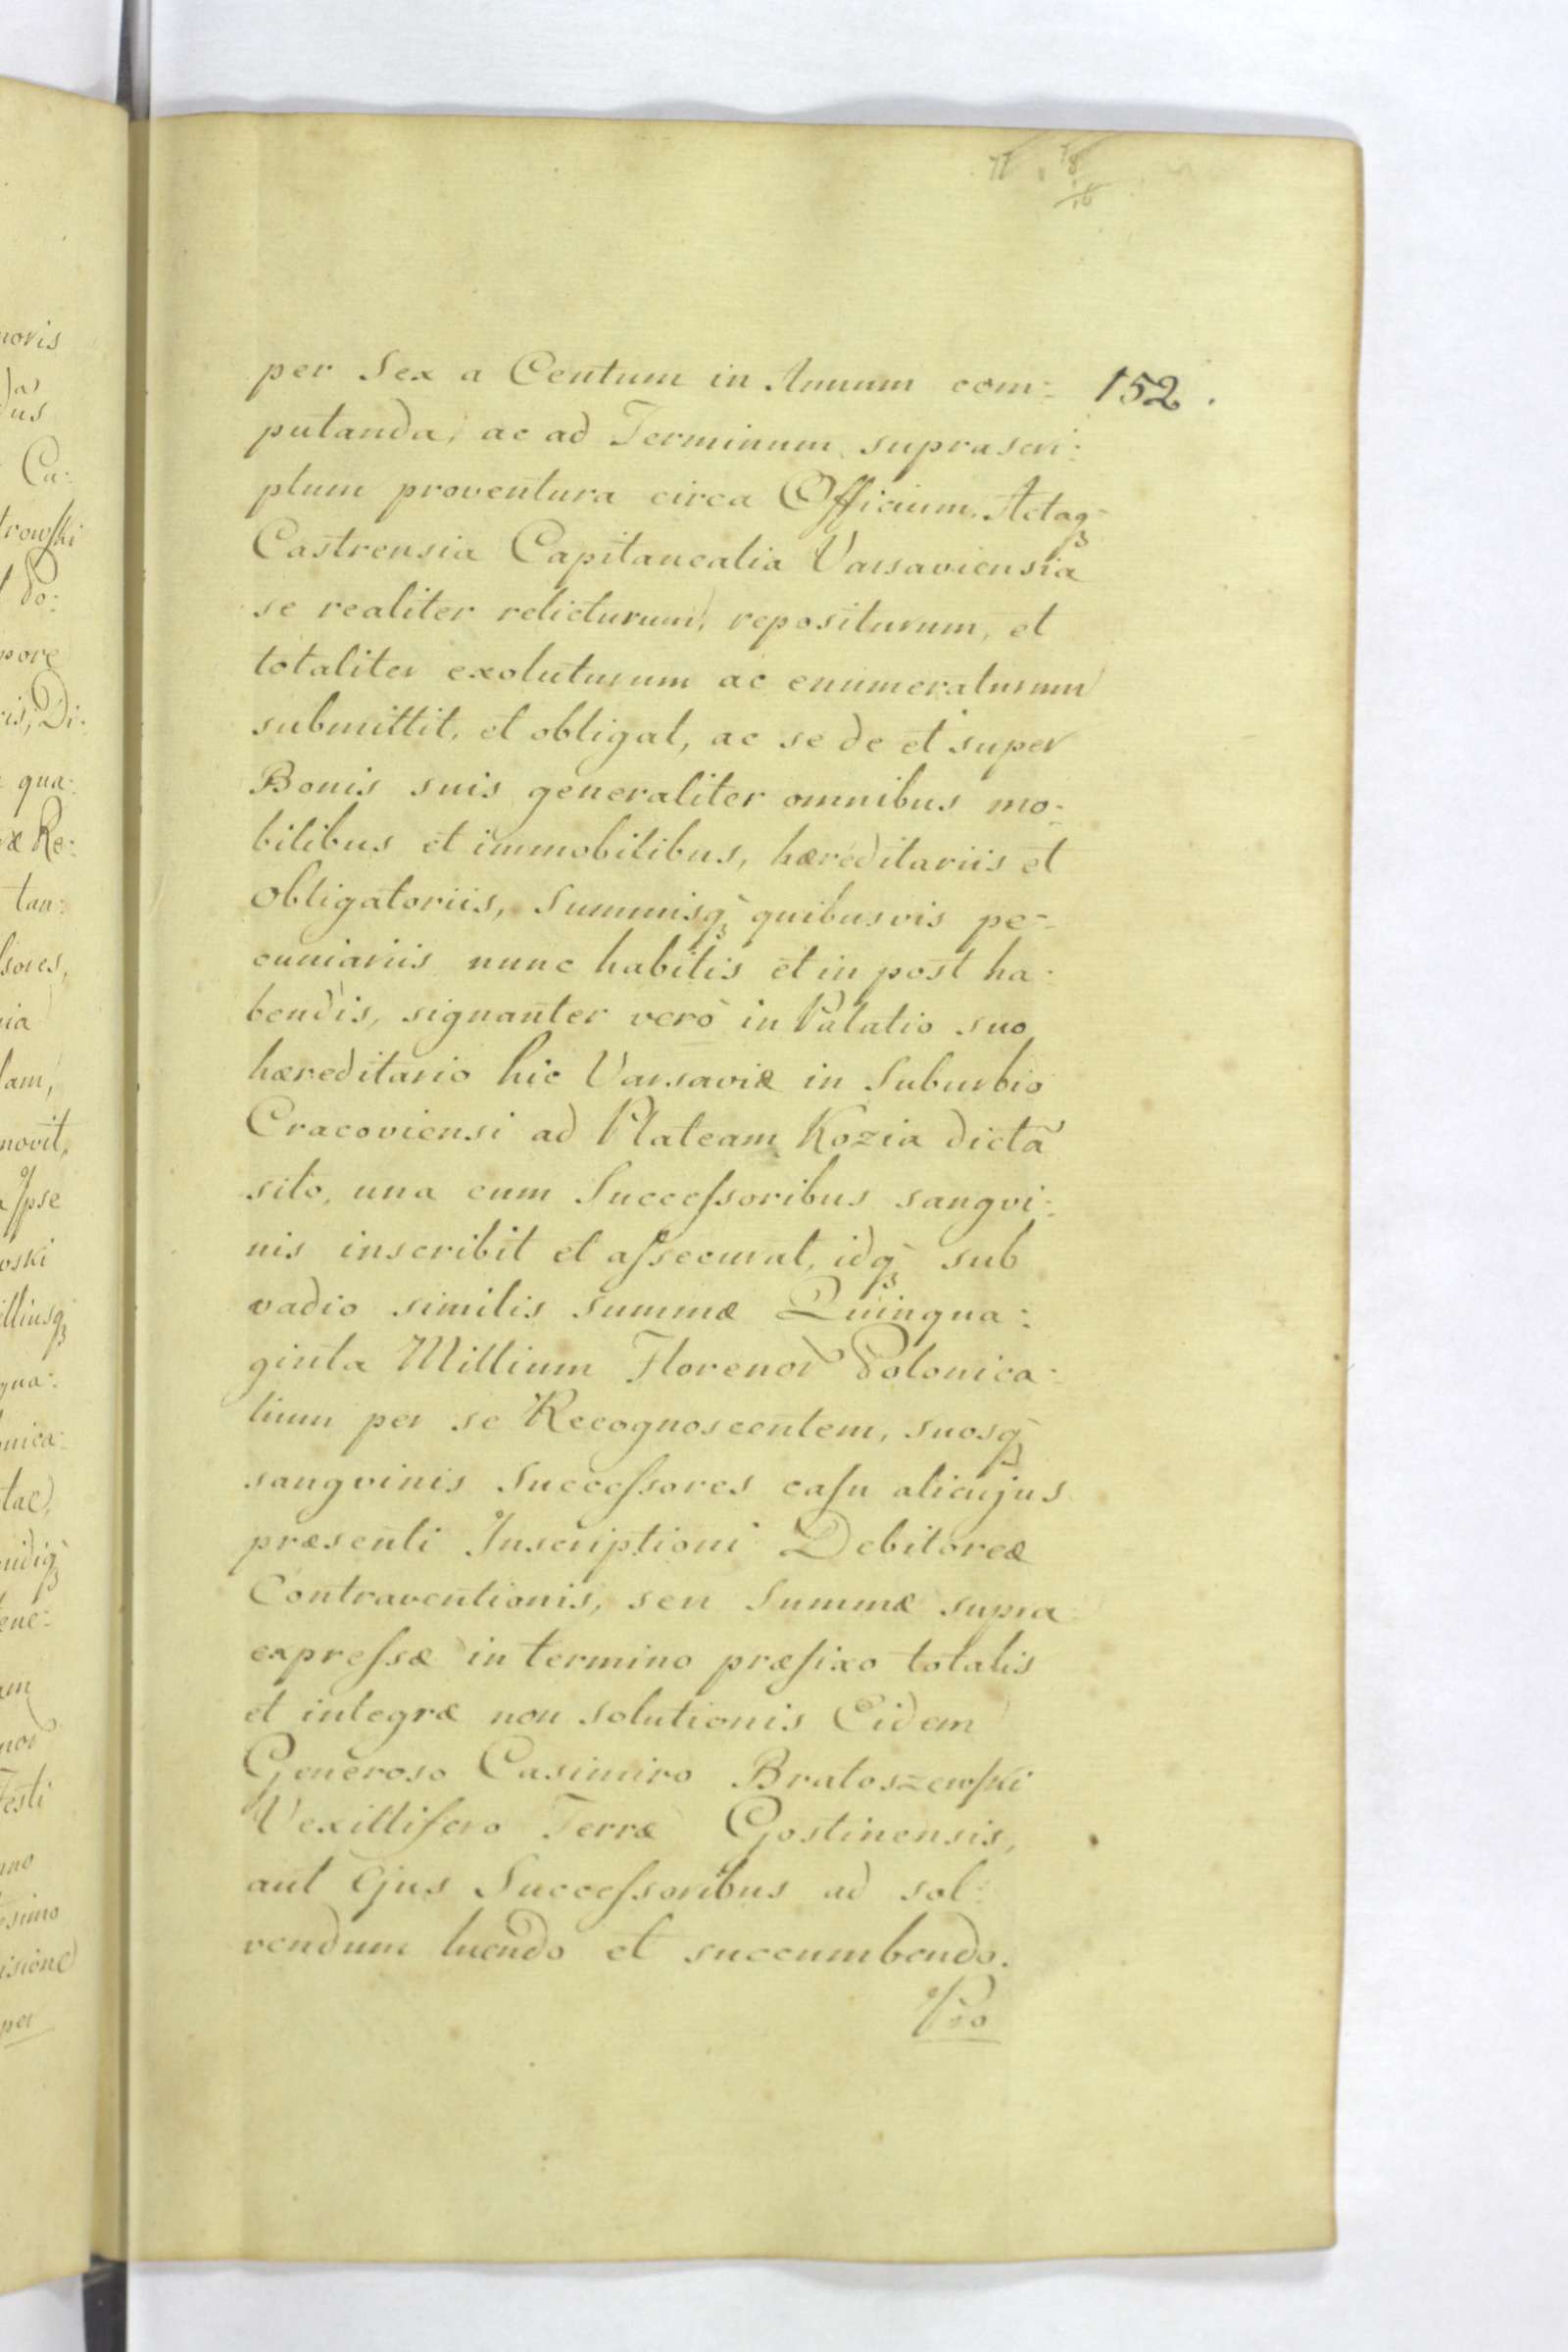 per Sex a Centum in Annum com:
152.
putanda, ac ad Terminum suprascri:
ptum proventura circa Officium, Actaqꝫ
Castrensia Capitanealia Varsaviensia
se realiter relicturum, repositurum, et
totaliter exoluturum ac enumeraturum
submittit, et obligat, ac se de et super
Bonis suis generaliter omnibus mo:
bilibus et immobilibus, hæreditariis et
obligatoriis, Summisqꝫ quibusvis pe:
cuniariis nunc habitis et in post ha:
bendis, signanter verò in Palatio suo
hæreditario hic Varsaviæ in Suburbio
Cracoviensi ad Plateam Kozia dictã
sito, una cum Succeſsoribus sangvi:
nis inscribit et aſsecurat, idqꝫ sub
vadio similis Summæ Quinqua:
ginta Millium Florenor̃ Polonica:
lium per se Recognoscentem, suosqꝫ
sangvinis Succeſsores caſu alicujus
præsenti Inscriptioni Debitoreæ
Contraventionis, seu Summæ supra
expreſsæ in termino præfixo totalis
et integræ non solutionis Eidem
Generoso Casimiro Bratoszewſki
Vexillifero Terræ Gostinensis,
aut Ejus Succeſsoribus ad sol:
vendum luendo et succumbendo.
Pro
noris
us
Ca:
trowſki
Po:
pore
ris, Di:
qua:
æ Re:
tan:
sores,
nia
lam,
novit,
Ipse
oski
illiusqꝫ
qua:
onica:
tac,
ene:
um
nor̃
Testi
nno
esimo
isione
per